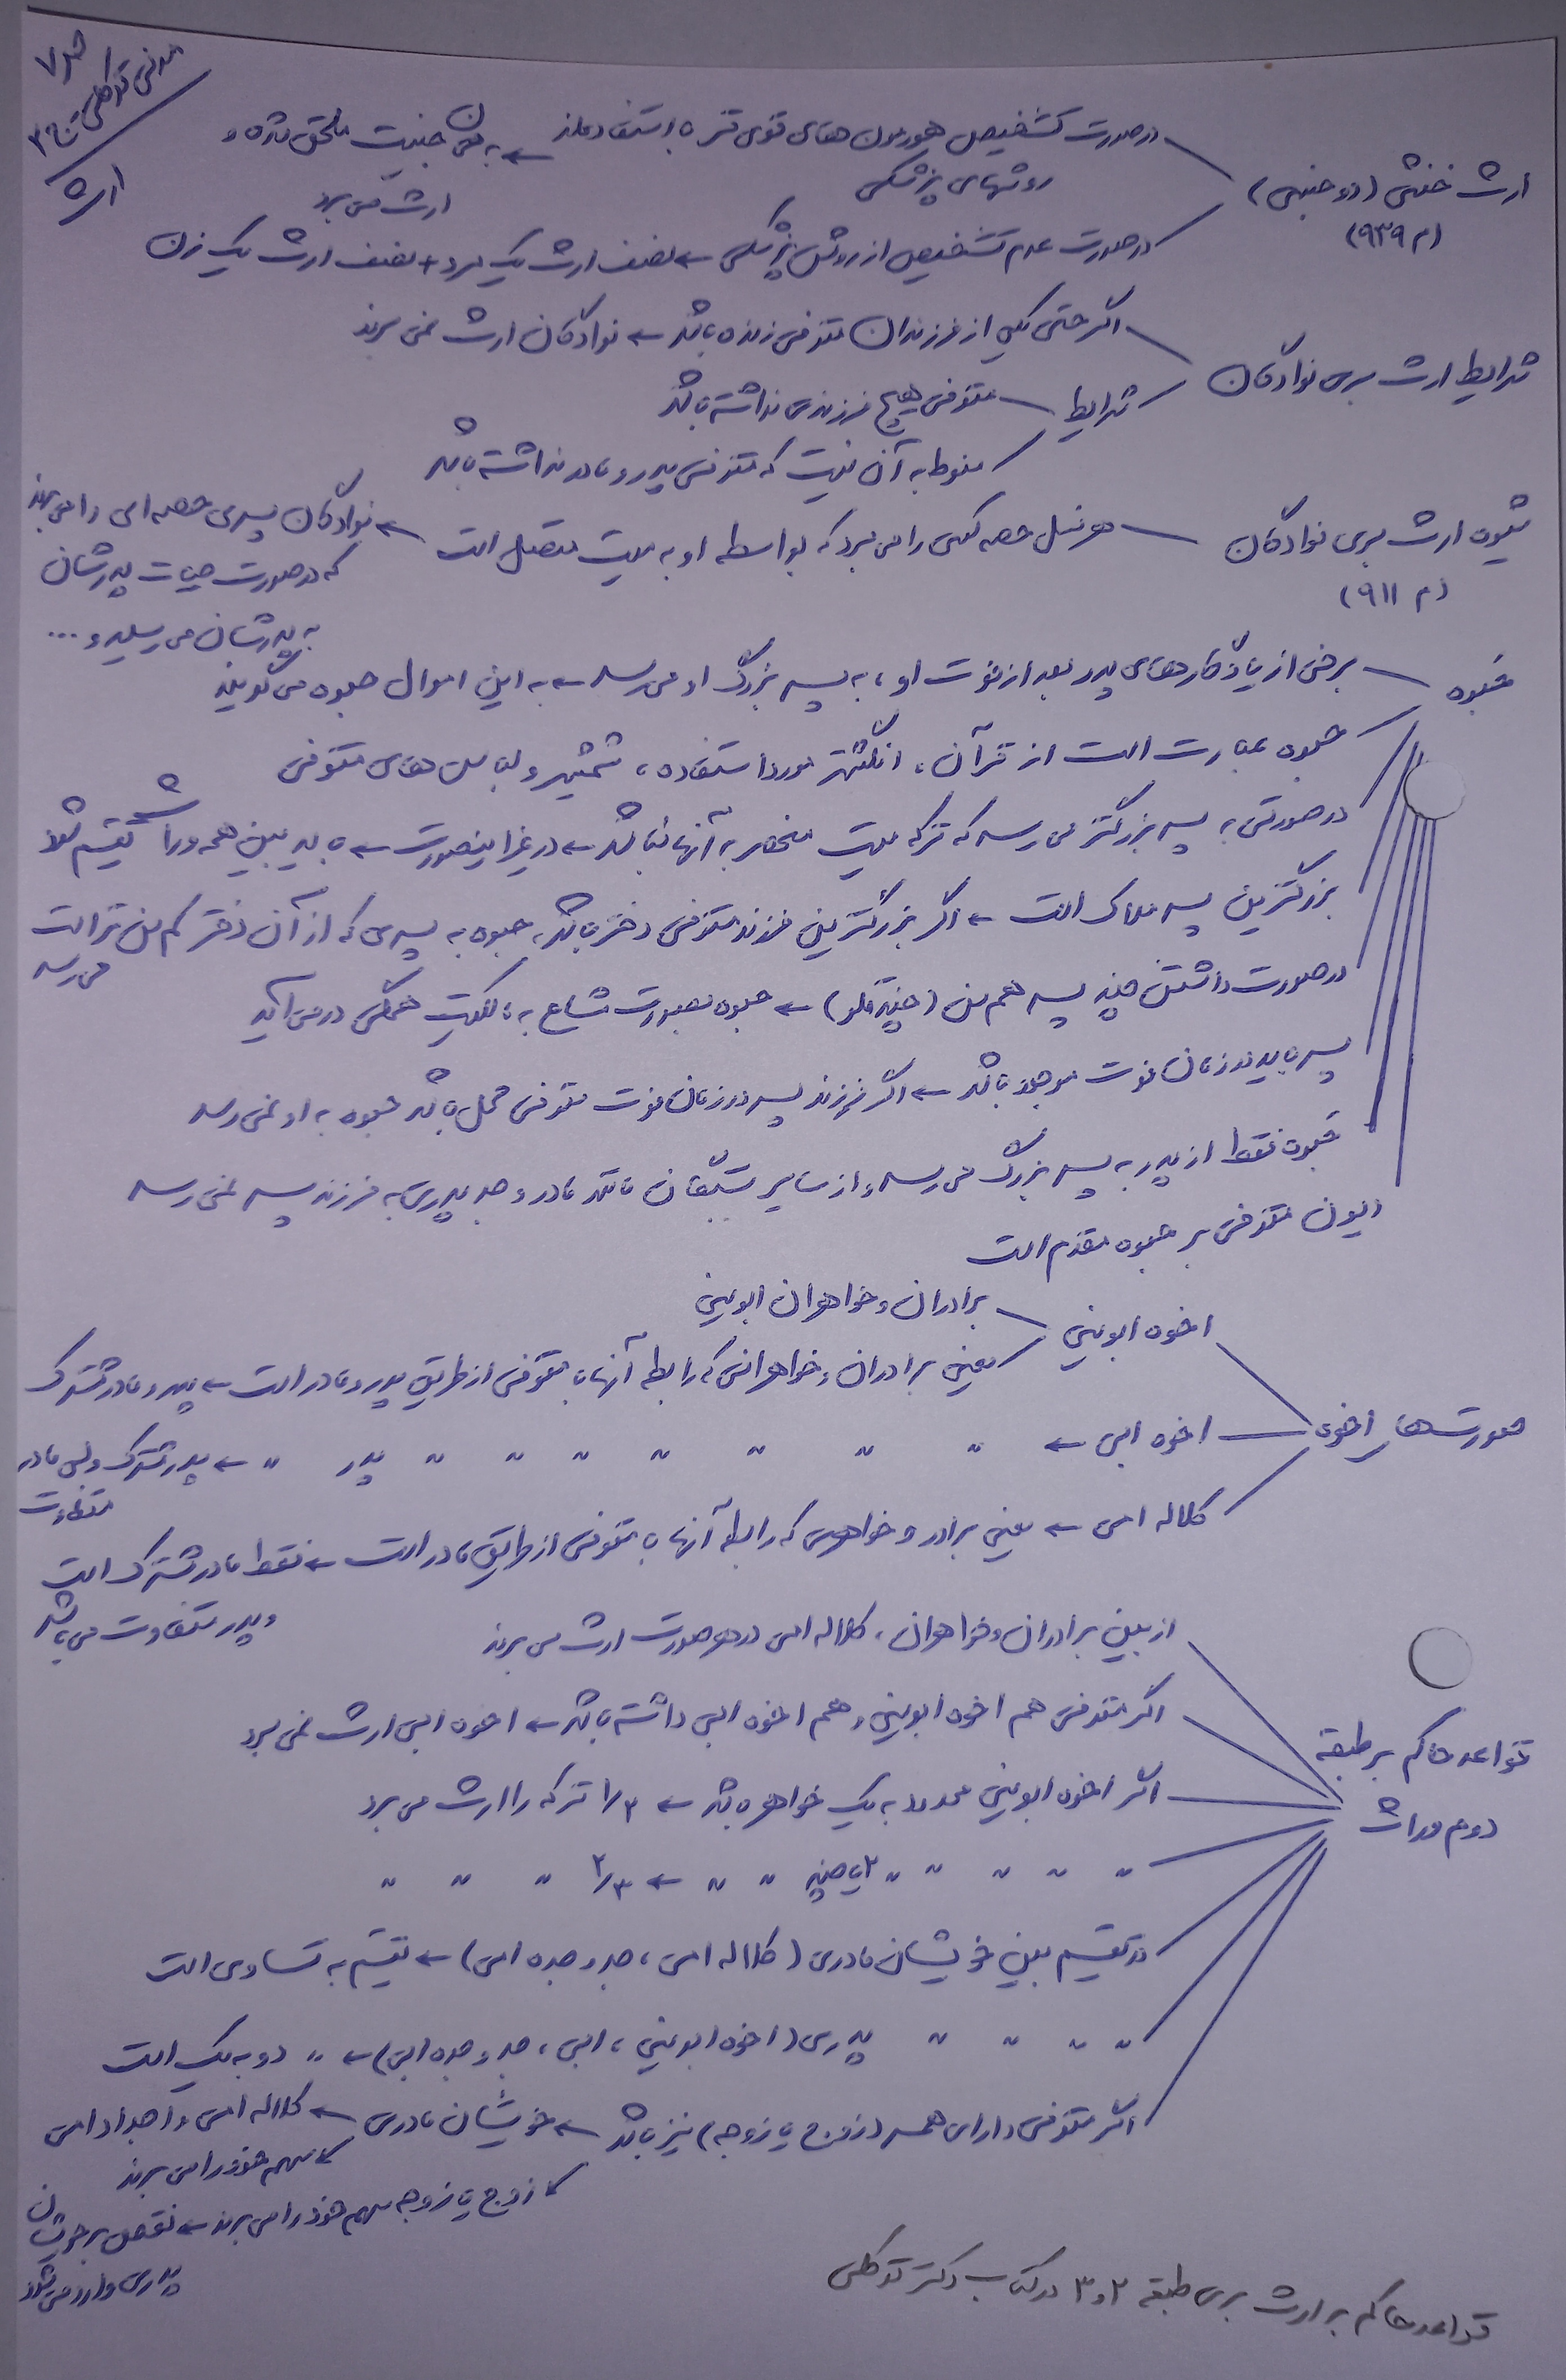 ص ۷
مدنی توکلی ج ۳
ارث
ارث خنثی (دو جنسی) (م ۹۳۹)
در صورت تشخیص هورمون های قوی تر با استفاده از روشهای پزشکی ← به همان جنسیت ملحق شده و ارث می برد
در صورت عدم تشخیص از روش پزشکی ← نصف ارث یک مرد + نصف ارث یک زن
شرایط ارث بری نوادگان
اگر حتی یکی از فرزندان متوفی زنده باشد ← نوادگان ارث نمی برند
شرایط
متوفی هیچ فرزندی نداشته باشد
منوط به آن نیست که متوفی پدر و مادر نداشته باشد
شیوه ارث بری نوادگان (م ۹۱۱)
هر نسل حصه کسی را می برد که بواسطه او به میت متصل است ← نوادگان پسری حصه ای را می برند
که در صورت حیات پدرشان
به پدرشان می رسید و ...
حَبوه
برخی از یادگارهای پدر بعد از فوت او، به پسر بزرگ او می رسد ← به این اموال حبوه می گویند
حبوه عبارت است از قرآن، انگشتر مورد استفاده، شمشیر و لباس های متوفی
در صورتی به پسر بزرگتر می رسد که ترکه میت منحصر به آنها نباشد ← در غیر اینصورت ← باید بین همه وراث تقسیم شود
بزرگترین پسر ملاک است ← اگر بزرگترین فرزند متوفی دختر باشد، حبوه به پسری که از آن دختر کم سن تر است می رسد
در صورت داشتن چند پسر هم سن (چند قلو) ← حبوه بصورت مشاع به مالکیت همگی در می آید
پسر باید در زمان فوت موجود باشد ← اگر فرزند پسر در زمان فوت متوفی حمل باشد حبوه به او نمی رسد
حَبوه فقط از پدر به پسر بزرگ می رسد و از سایر بستگان مانند مادر و جد پدری به فرزند پسر نمی رسد
دیون متوفی بر حبوه مقدم است
صورتهای اخوه
اخوه ابوینی
برادران و خواهران ابوینی
یعنی برادران و خواهرانی که رابطه آنها با متوفی از طریق پدر و مادر است ← پدر و مادر مشترک
اخوه ابی ← " " " " " " " " پدر " ← پدر مشترک ولی مادر متفاوت
کلاله امی ← یعنی برادر و خواهری که رابطه آنها با متوفی از طریق مادر است ← فقط مادر مشترک است
و پدر متفاوت می باشد
قواعد حاکم بر طبقه دوم وراث
از بین برادران و خواهران، کلاله امی در هر صورت ارث می برند
اگر متوفی هم اخوه ابوینی و هم اخوه ابی داشته باشد ← اخوه ابی ارث نمی برد
اگر اخوه ابوینی محدود به یک خواهر باشد ← ۱/۲ ترکه را ارث می برد
" " " " " ۲ یا چند " " ← ۲/۳ " " "
در تقسیم بین خویشان مادری (کلاله امی، جد و جده امی) ← تقسیم به تساوی است
" " " " پدری (اخوه ابوینی، ابی، جد و جده ابی) ← " دو به یک است
اگر متوفی دارای همسر (زوج یا زوجه) نیز باشد ← خویشان مادری ← کلاله امی و اجداد امی
سهم خود را می برند
زوج یا زوجه سهم خود را می برند ← نقص بر خویشان
پدری وارد می شود
قواعد حاکم بر ارث بری طبقه ۲ و ۳ در کتاب دکتر توکلی